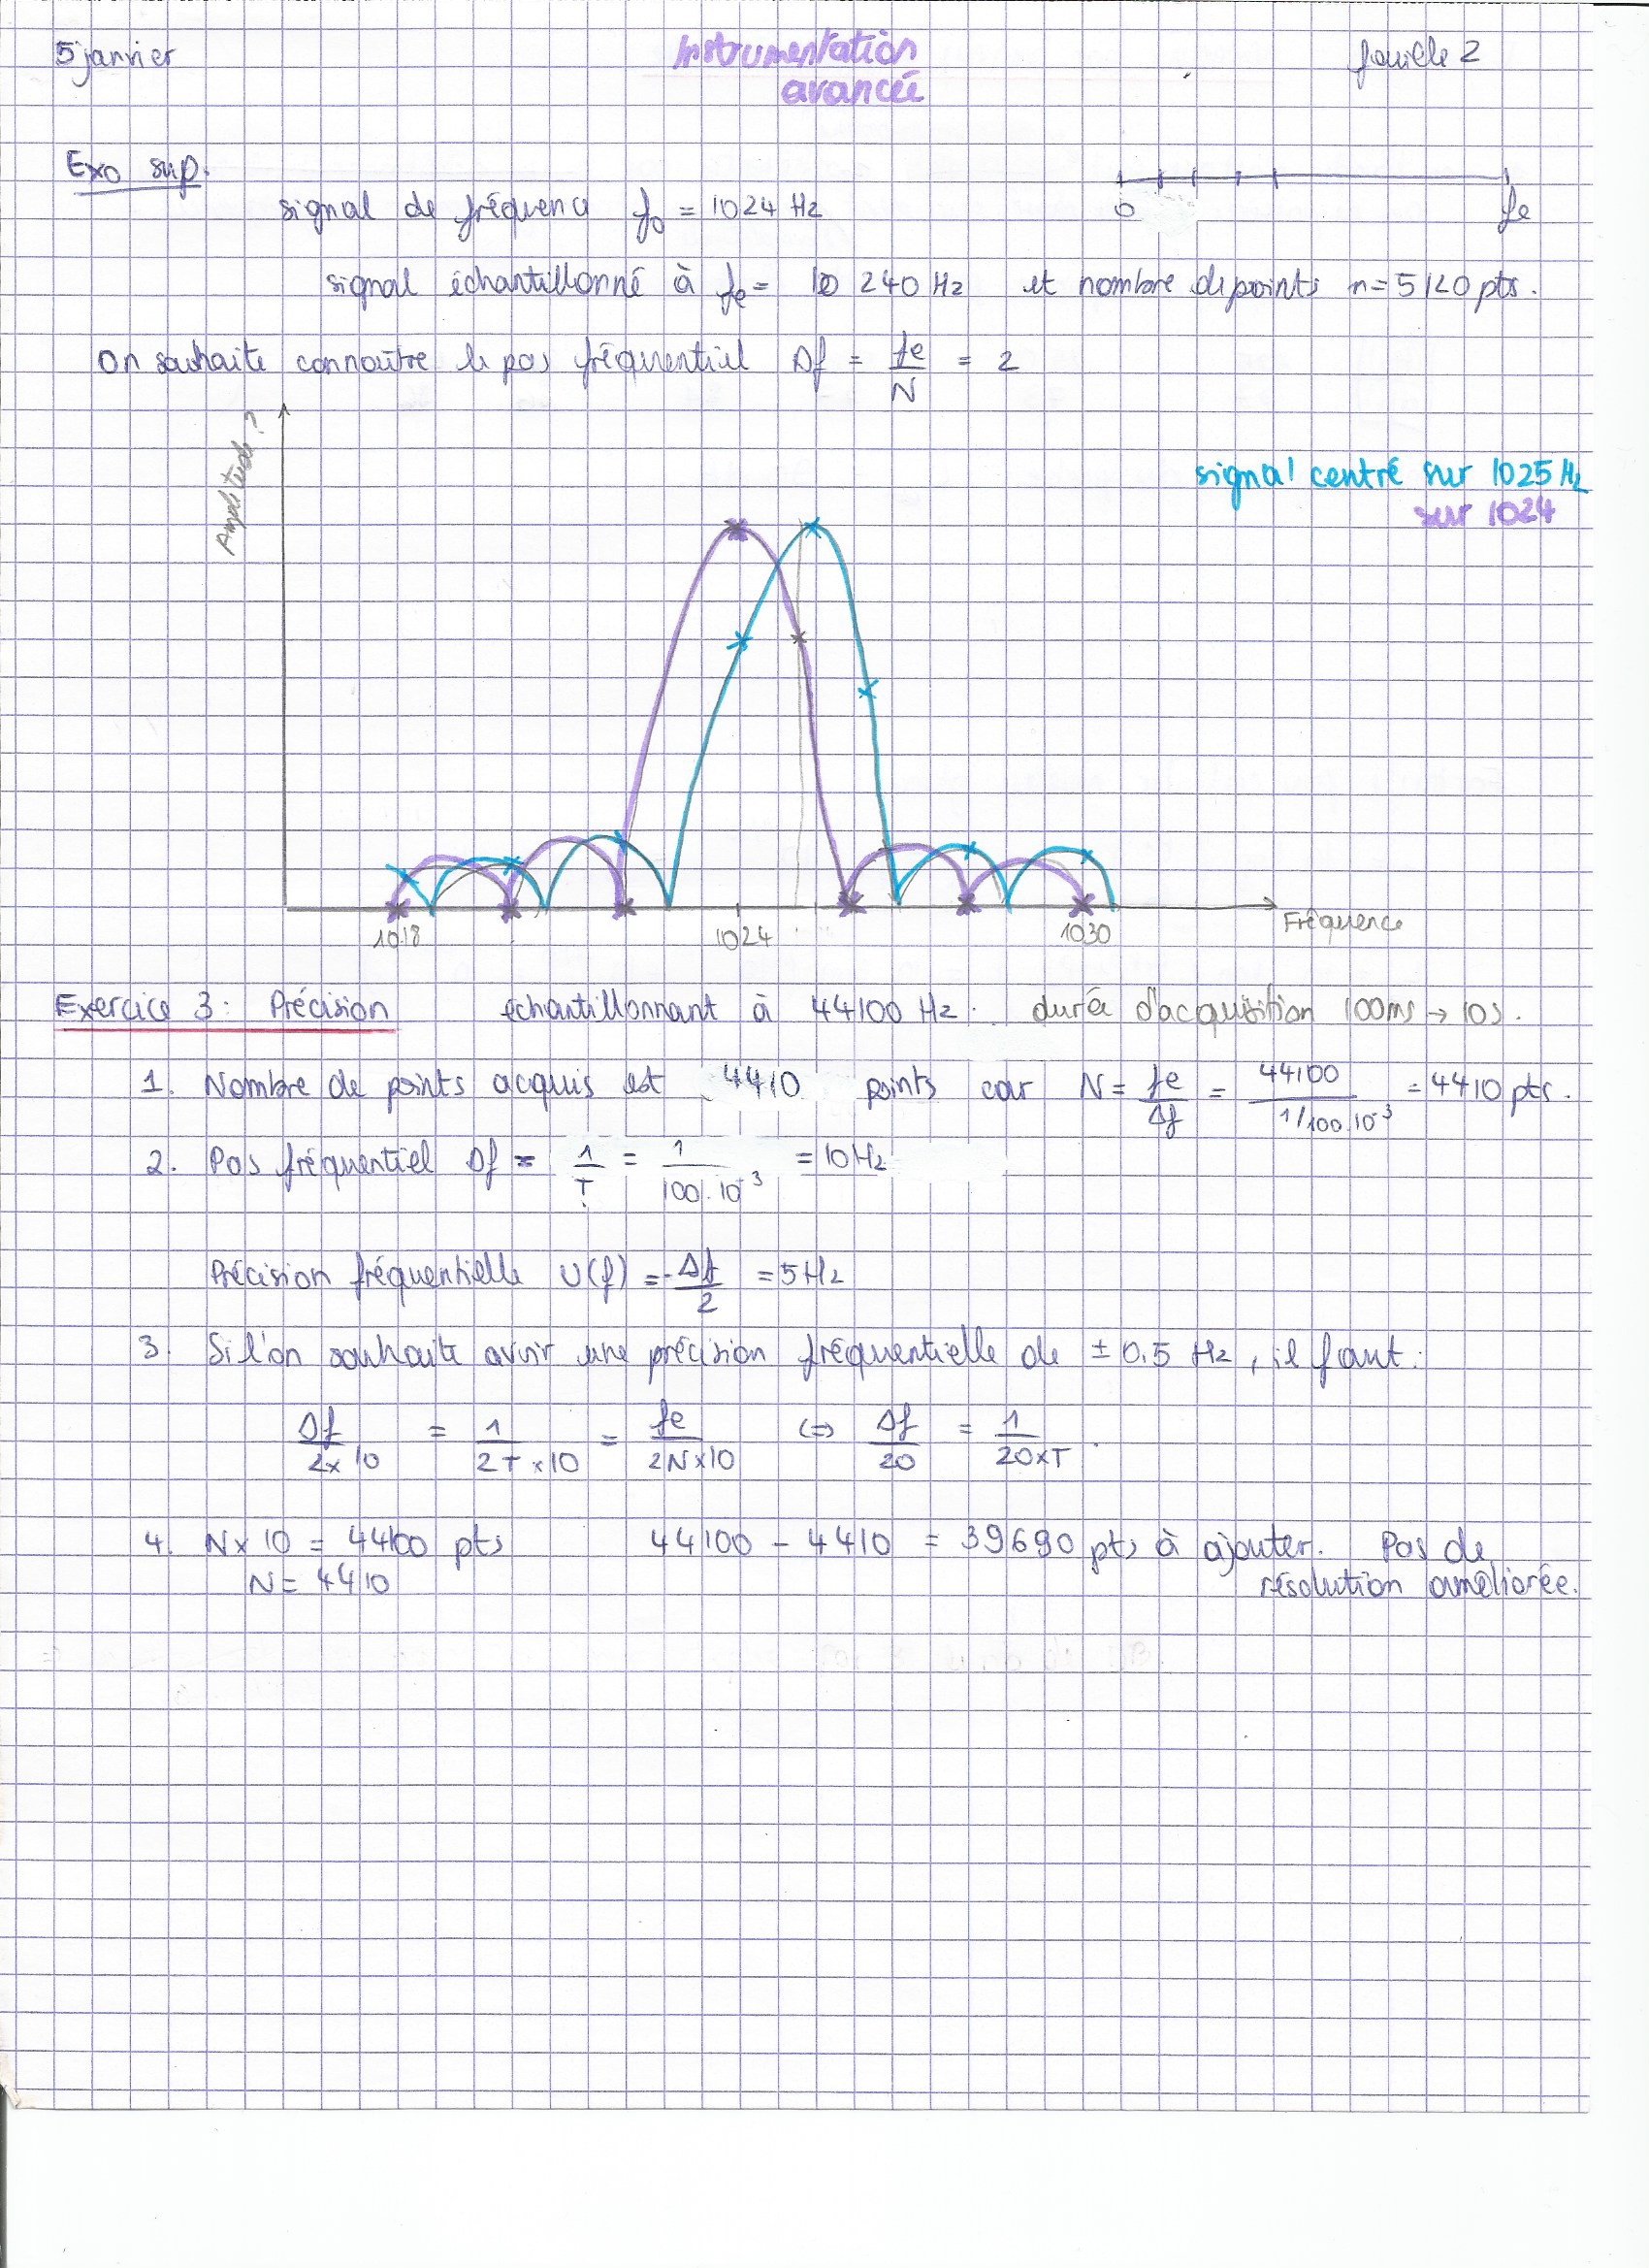 5 janvier
Instrumentation
avancée
feuille 2
Exo sup.
signal de fréquence f0 = 1024 Hz
0 fe
signal échantillonné à fe = 10 240 Hz et nombre de points n = 5120 pts.
On souhaite connaître le pas fréquentiel Δf = fe/N = 2
Amplitude ?
signal centré sur 1025 Hz
sur 1024
1018 1024 1030 Fréquence
Exercice 3 : Précision échantillonnant à 44100 Hz. durée d'acquisition 100ms → 10s.
1. Nombre de points acquis est 4410 points car N = fe/Δf = 44100/(1/100.10^-3) = 4410 pts.
2. Pas fréquentiel Δf = 1/T = 1/(100.10^-3) = 10Hz
Précision fréquentielle U(f) = Δf/2 = 5Hz
3. Si l'on souhaite avoir une précision fréquentielle de ± 0.5 Hz, il faut :
Δf/(2x10) = 1/(2T x10) = fe/(2N x10) <=> Δf/20 = 1/(20xT).
4. N x 10 = 44100 pts 44100 - 4410 = 39690 pts à ajouter. Pas de
N = 4410 résolution améliorée.